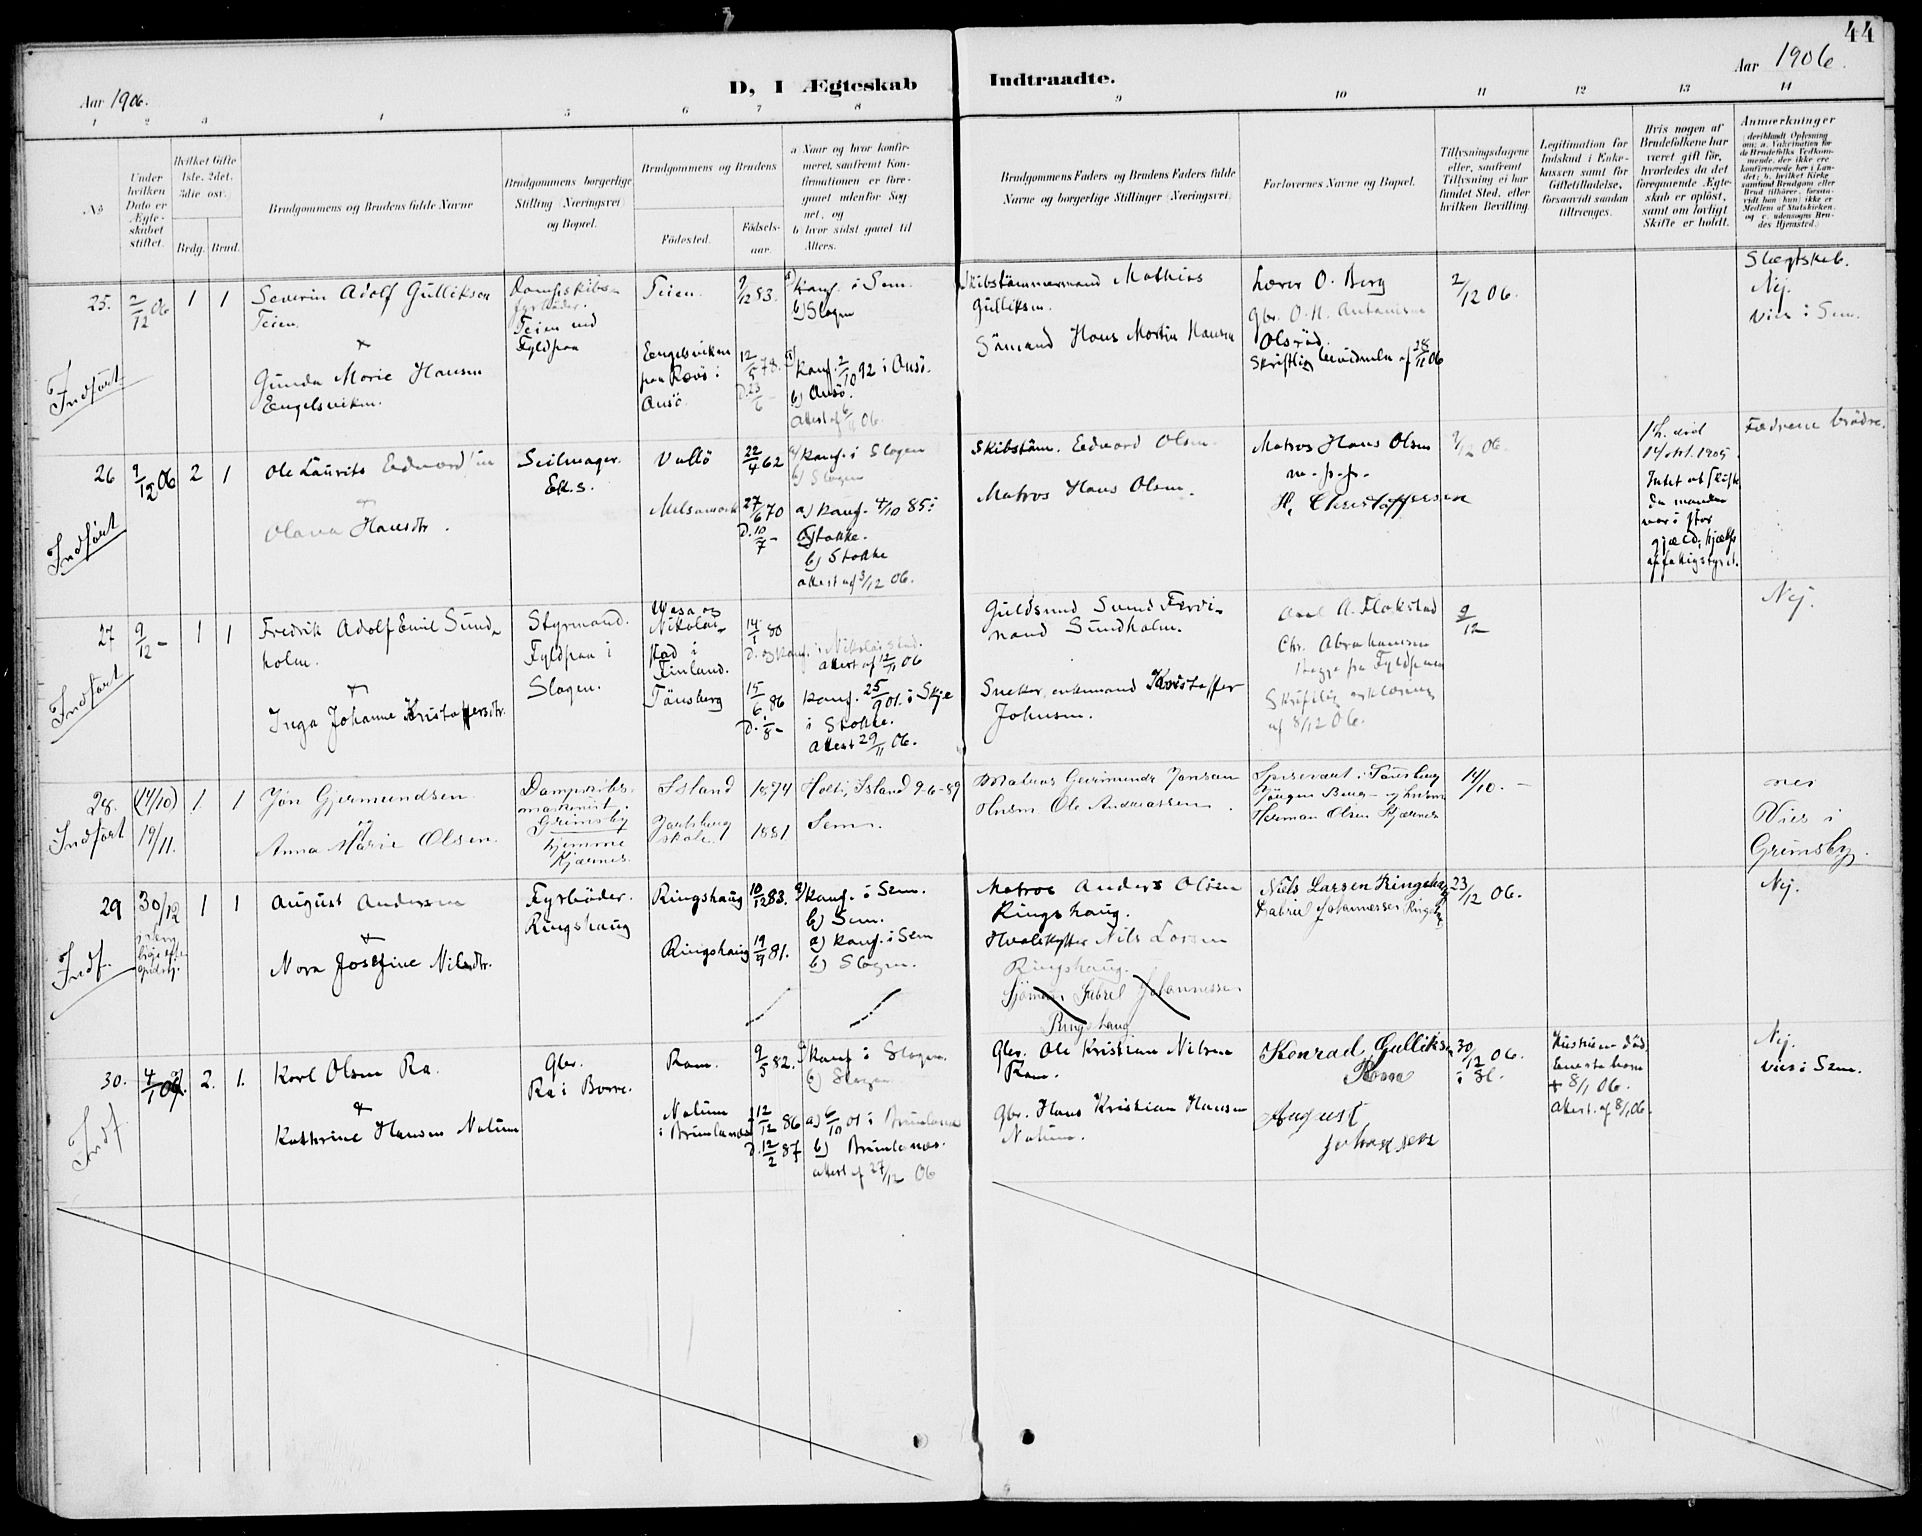 44
Aar 1906.
D, I Ægteskab Indtraadte.
Aar 1906.
1 2 3 4 5 6 7 8 9 10 11 12 13 14
No
Under hvilken Dato er Ægteskabet stiftet.
Hvilket Gifte 1ste, 2det, 3die osv.
Brdg. Brud.
Brudgommens og Brudens fulde Navne
Brudgommens borgerlige Stilling (Næringsvei) og Bopæl.
Brudgommens og Brudens
Fødested.
Fødselsaar.
a Naar og hvor konfirmeret, saafremt Konfirmationen er foregaaet udenfor Sognet, og
b hvor sidst gaaet til Alters.
Brudgommens Faders og Brudens Faders fulde Navne og borgerlige Stillinger (Næringsvei)
Forlovernes Navne og Bopæl.
Tillysningsdagene eller, saafremt Tillysning ei har fundet Sted, efter hvilken Bevilling
Legitimation for Indskud i Enkekassen samt for Giftetilladelse, forsaavidt saadan tiltrænges.
Hvis nogen af Brudefolkene har været gift før, hvorledes da det foregaaende Ægteskab er opløst, samt om lovligt Skifte er holdt.
Anmærkninger
25. 2/12 06 1 1
Severin Adolf Gulliksen
Teien.
&
Gunda Marie Hansen
Engelsviken.
Indført
Dampskibsfyrbøder.
Teien ved
Fyldpaa
Teien. 9/12 83.
a) Konf. i Sem.
b) Slagen
Engelsviken
paa Rævø i
Onsø
12/5 78.
D. 23/6 -
a) Konf. 2/10 92 i Onsø.
b) Onsø.
Attest af 6/11 06.
Skibstømmermand Mathias
Gulliksen.
Sømand Hans Martin Hansen
Lærer O. Berg
Gbr. O. H. Antonisen
Olsrød.
Skriftlig 28/11 06
2/12 06.
Slægtskab.
Nej.
Vies i Sem.
26 9/12 06 2 1
Ole Laurits Edvardsen
&
Olava Hansdtr.
Indført
Seilmager.
Ek. s.
Vallø 22/4 62
a) Konf. i Slagen
b) Slagen
27/6 70
D. 10/7 -
a) Konf. 4/10 85 i
Stokke.
b) Stokke
Attest af 3/12 06.
Skibstøm. Edvard Olsen.
Matros Hans Olsen.
Matros Hans Olsen
m. p. p.
H. Christoffersen
9/12 06.
1ste. død
14 okt. 1905
Intet at skifte
da manden
var i stor
gjæld, hjælp
af fattigstyret.
Fædrene brødre.
27 9/12 - 1 1
Fredrik Adolf Emil Sundholm.
&
Inga Johanne Kristoffersdtr.
Indført
Styrmand.
Fyldpaa i
Slagen.
Wasa og
Nikolaistad i
Finland.
14/1 80
Konf. i Nikolaistad.
Attest af 12/11 06
Tønsberg 15/6 86
D. 1/8 -
Konf. 25/9 01. i Skjee
i Stokke.
Attest 29/11 06.
Guldsmed Sund Ferdinand Sundholm.
Snekker, enkemand Kristoffer
Johnsen.
Axel A. Flakstad
Chr. Abrahamsen
Begge fra Fyldpaa
Skriftlig erklæring
af 8/12 06.
9/12
Nej.
28. (14/10) 19/11. 1. 1
Jon Gjermundsen
og
Anna Marie Olsen.
Indført
Dampskibsmaskinist.
Grimsby
hjemme
Kjærnes.
Island 1874
Holt, Island 9-6-89
Jarlsberg
skole. 1881. Sem.
Matros Geirmundr Jonsson
Husm Ole Andreassen.
Spisevært i Tønsberg
Jørgen Berg og husm
Herman Olsen Kjærnes
14/10. -
nei
Vies i
Grimsby.
29 30/12 1 1
August Andersen
&
Nora Josefine Nilsdtr.
Indf.
Fyrbøder.
Ringshaug
Ringshaug 10/12 83.
a) Konf. i Sem.
b) Sem.
Ringshaug 19/9 81.
a) Konf. i Sem
b) Slagen.
Matros Anders Olsen
Ringshaug.
Hvalskytter Nils Larsen
Ringshaug.
Sjømand Gabriel Johannessen
Ringshaug
Niels Larsen Ringshaug
Gabriel Johannessen Ringshaug
23/12 06.
Nej.
30. 4/1 07. 2. 1.
Karl Olsen Ra.
&
Kathrine Hansen Nalum
Indf.
Gbr.
Ra i Borre.
Ram. 9/5 82.
a) Konf i Slagen.
b) Slagen
Nalum
i Brunlanæs
12/12 86
D. 12/2 87
a) 6/10 01 i Brunlanæs
b) Brunlanæs.
Attest af 27/12 06
Gbr. Ole Kristian Nilsen
Ram.
Gbr. Hans Kristian Hansen
Nalum.
Konrad Gulliksen
Raa
August
Johansen
30/12 06.
i Sl.
Hustruen død
Eneste barn
+ 8/1 06.
Attest. af 8/1 06.
Nej.
Vies i Sem.